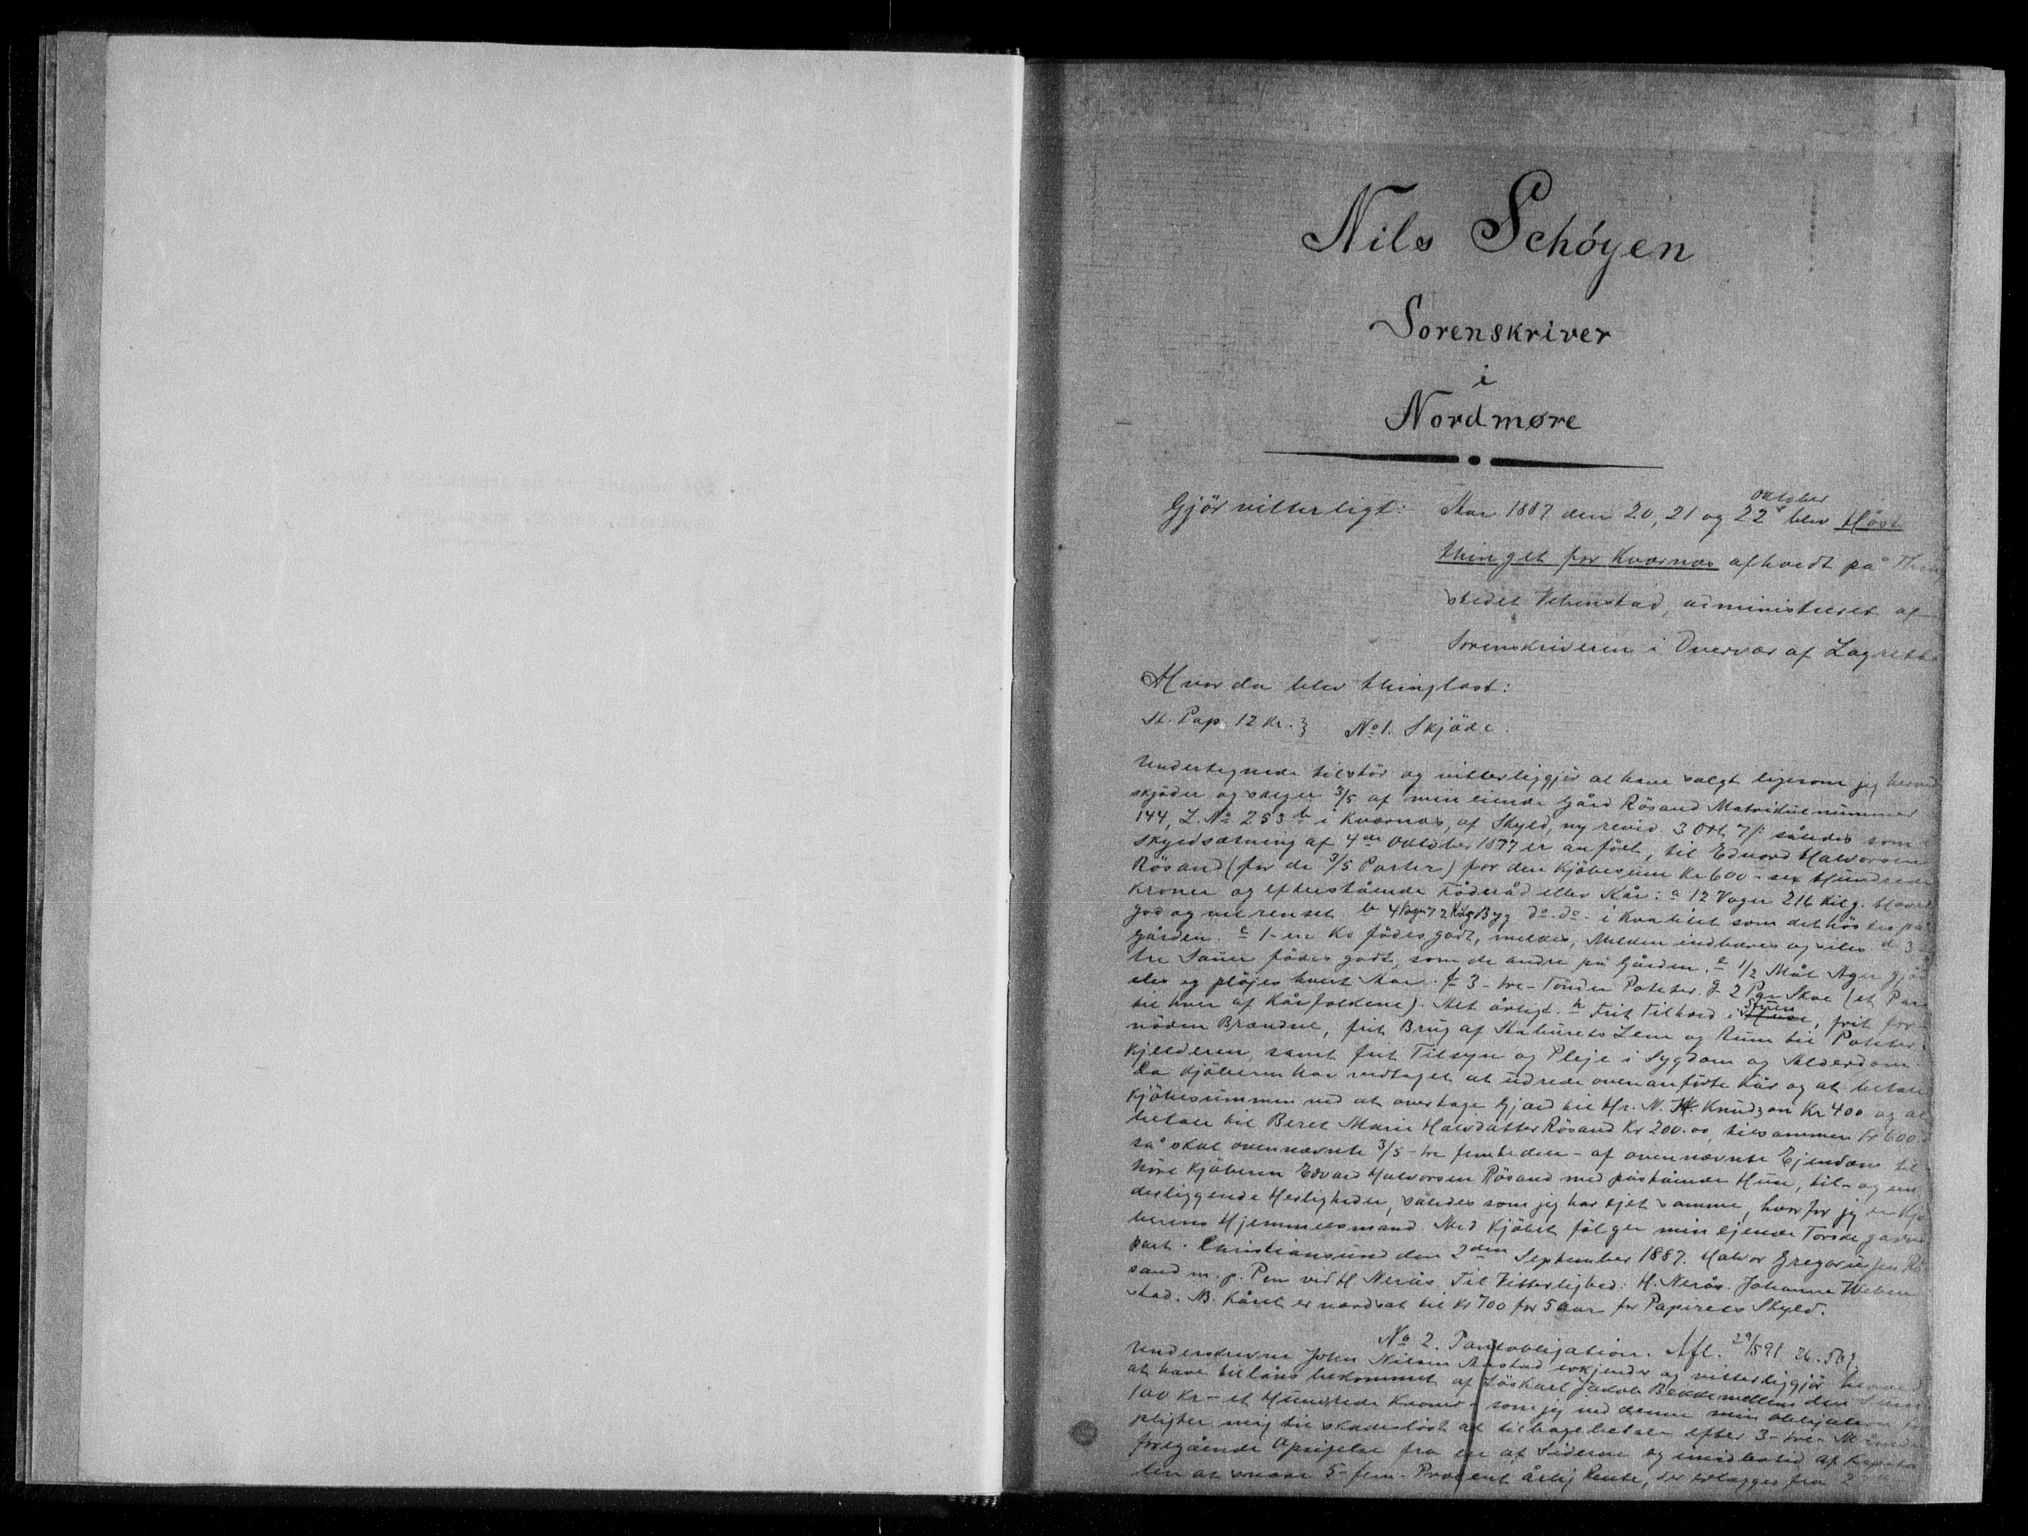 Nils Schöyen
Sorenskriver
i
Nordmøre
Gjör vitterligt: Aar 1887 den 20, 21 og 22 Oktober blev Höst
thinget for Kværnæs afholdt på Thin
stedet Vebenstad, administreret af
Sorenskriveren i Overvær af Lagrette
Hvorda blev thinglæst:
St. Pap. 12 kr. No 1. Skjöde.
Undertegnede tilstår og vitterliggjör at have solgt ligesom jeg herved
skjöder og sælger 3/5 af min eiende Gård Rösand Matrikulnummer
144, L. No 253 b i Kværnæs, af Skyld, ny revid. 3 Ort 7 således som
Skyldsætning af 4de Oktober 1877 er anfört, til Edvard Halvorsen
Rösand (for de 3/5 Parter) for den Kjöbesum Kr 600 - sex Hundrede
Kroner og efterstående Föderåd eller Kår: a 12 Voger 216 Kilg.
god og vel renset. b 4 Voger 72 Kilg Byg do. do. i Kvalitet som det höstes på
Gården. c 1 - en Ko födes godt, melkes, Melken indbæres og siles. d 3 -
tre Sauer födes godt, som de andre på Gården. e 1/2 Mål Ager gjö
des og plöjes hvert Aar. f 3 - tre - Tönder Poteter. g 2 Par Skoe (et Par
til hver af Kårfolkene). Alt årligt. h Frit Tilhold i Stuen, frit for
nöden Brændne, frit Brug af Staburets Lem og Rum til Poteter i
Kjelderen, samt frit Tilsyn og Pleje i Sygdom og Alderdom.
Da Kjöberen har vedtaget at udrede ovenanförte Kår og at betale
Kjöbesummen ved at overtage Gjæld til Hr. N. H. Knudzon Kr 400 og at
betale til Beret Marie Halvsdatter Rösand Kr 200.00, tilsammen Kr 600
så skal ovennævnte 3/5 - tre femtedele - af ovennævnte Ejendom til
höre Kjöberen Edvard Halvorsen Rösand med påstående Huse, til- og un
derliggende Herligheder, således som jeg har ejet samme, hvorfor jeg er Kjö
berens Hjemmelsmand. Med Kjöbet fölger min ejende Torsdegarns
part. Christiansund den 2den September 1887. Halvor Gregoriusen Rö
sand m. p. Pen ved H. Nerås. Til Vitterlighed: H. Nerås. Johanne Weben
stad. NB. Kåret er værdsat til Kr 700 for 5 Aar for Papirets Skyld.
No 2. Pantobligation. Afl. 29/5 91
Underskrevne John Nilsen Aastad erkjender og vitterliggjör herved
at have tillåns bekommet af Löskarl Jakob Bekkemellem den Sum
100 Kr - et Hundrede Kroner - som jeg ved denne min Obligation for
pligter mig til skadeslöst at tilbagebetale efter 3 - tre - Måneders
foregående Opsigelse fra en af Siderne og imidlertid af Kapita
len at svare 5 - fem - Procent årlig Rente, der erlægges fra 2